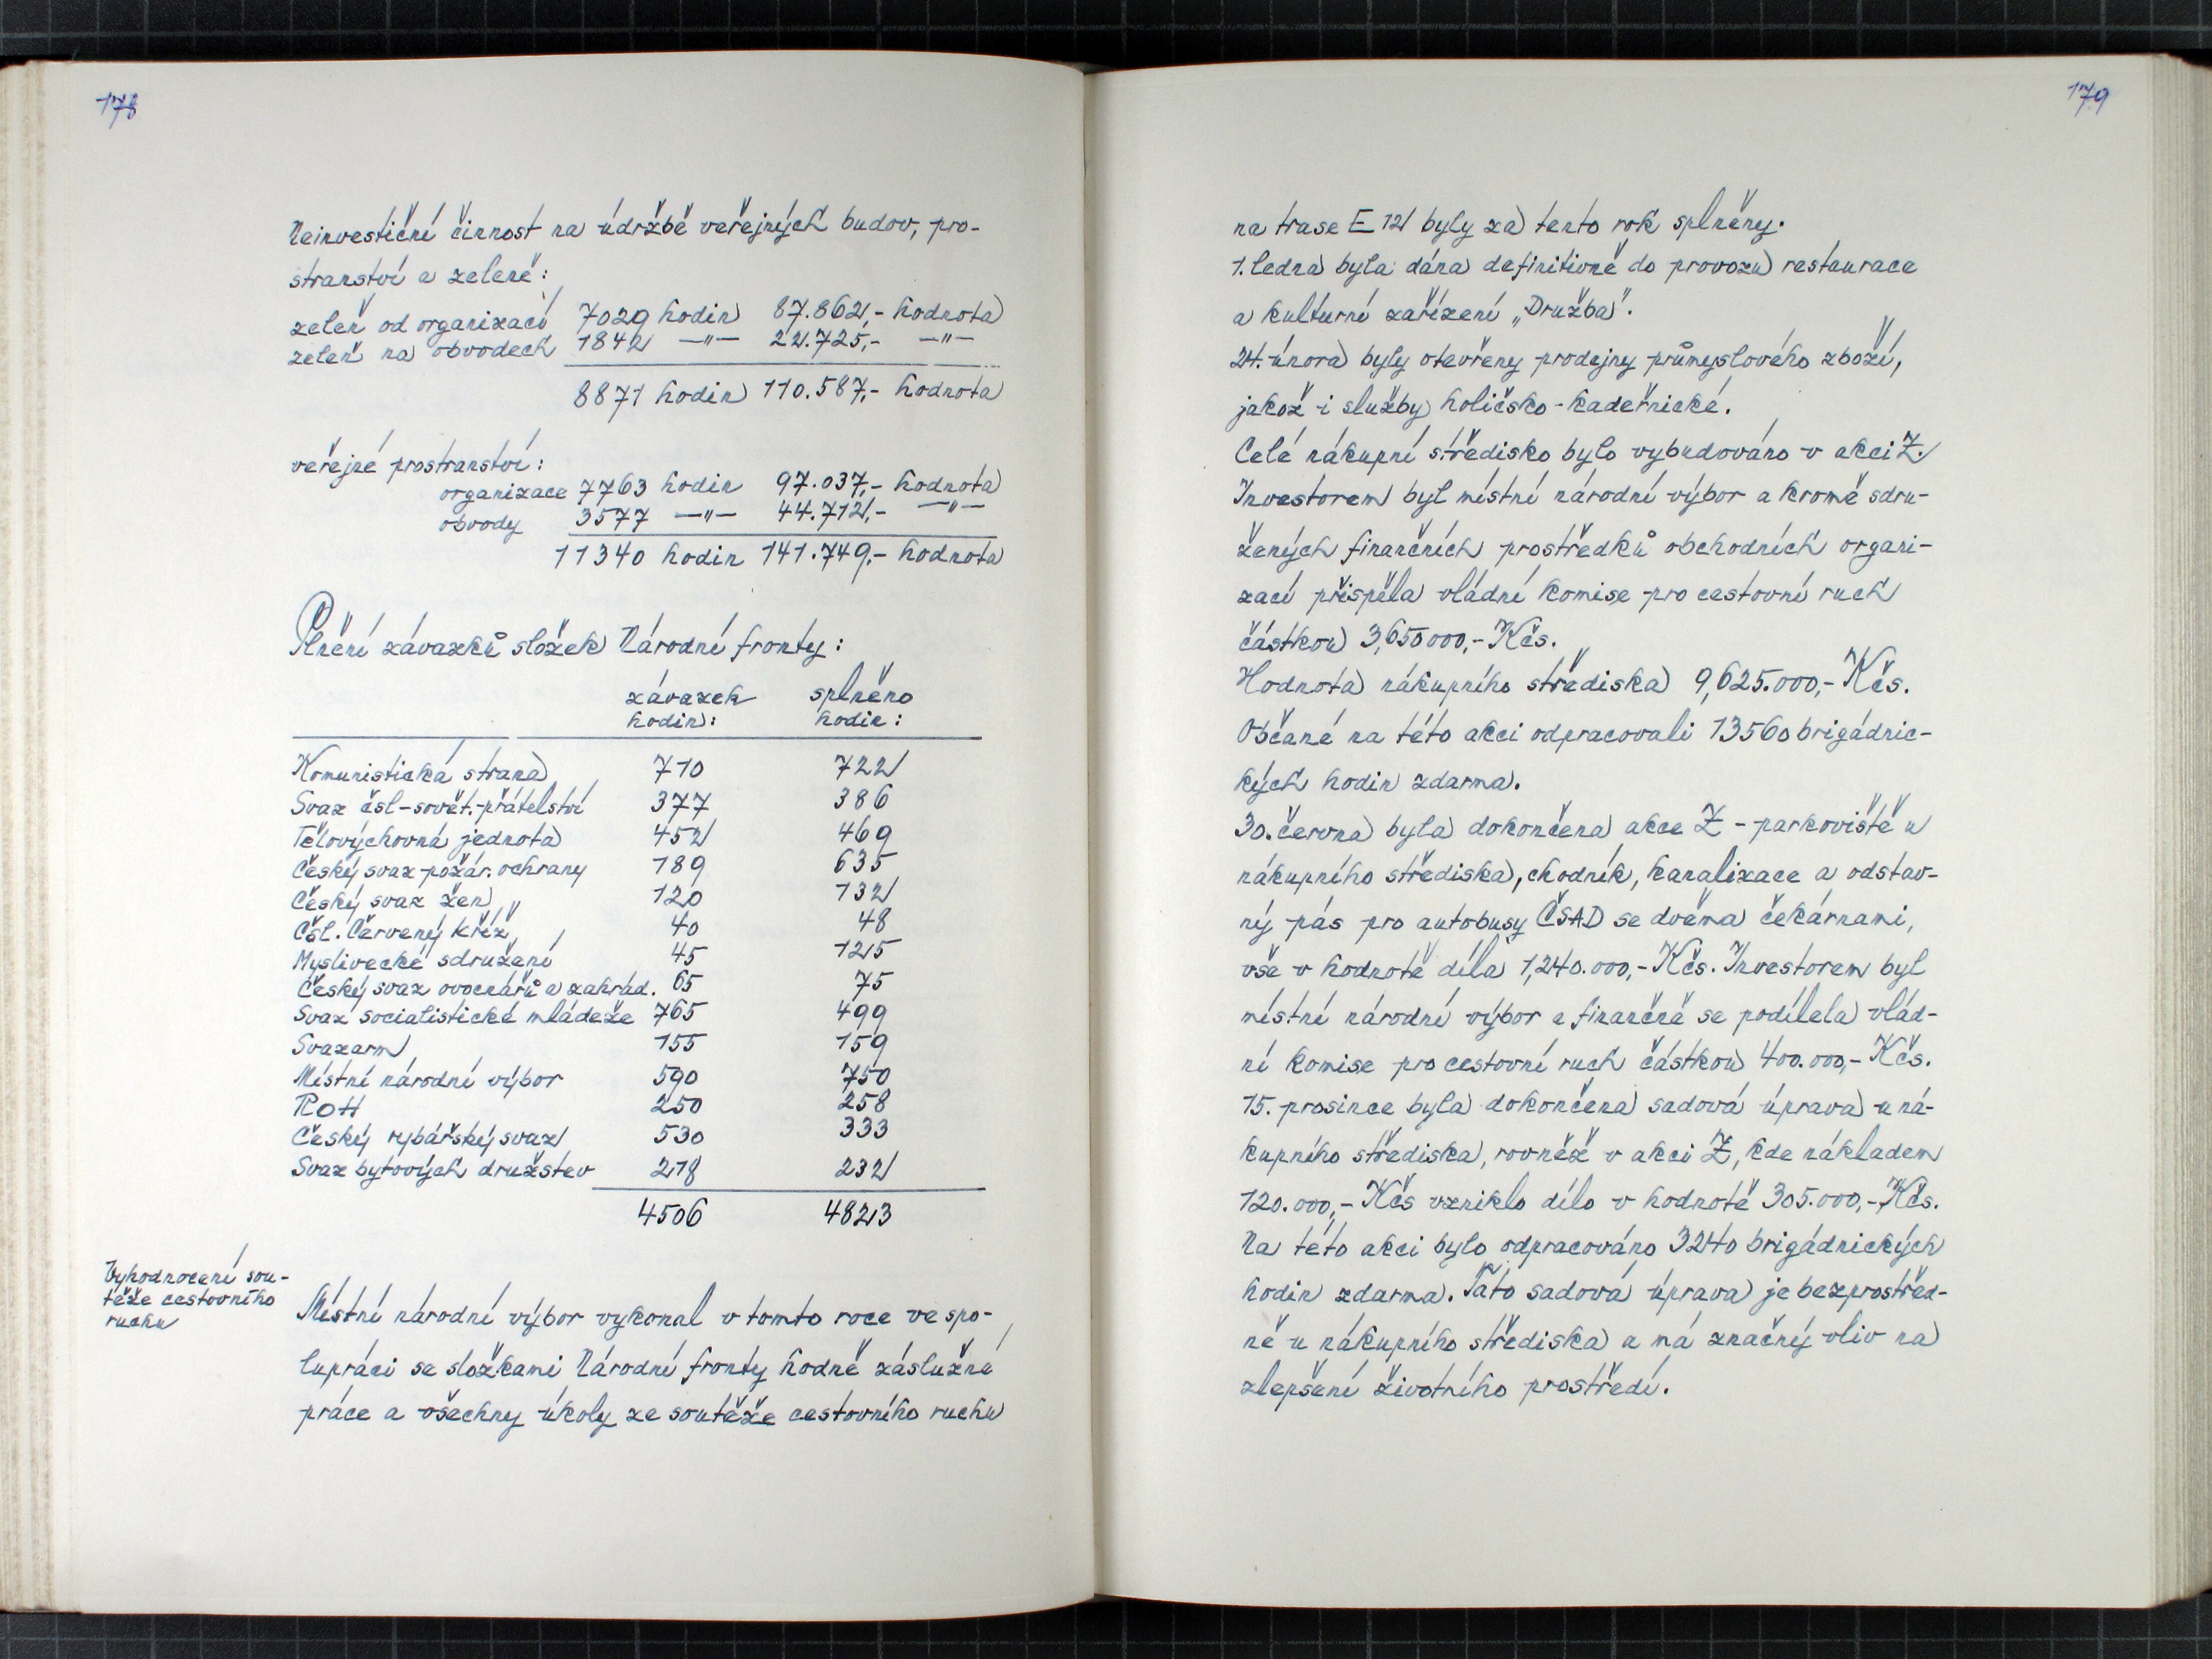 178
Neinvestiční činnost na údržbě veřejných budov, pro-
stranství a zeleně:
zeleň od organizací 7029 hodin 87.862,- hodnota
zeleň na obvodech 1842 —"— 22.725,- —"—
8871 hodin 110.587,- hodnota
veřejné prostranství:
organizace 7763 hodin 97.037,- hodnota
obvody 3577 —"— 44.712,- —"—
11340 hodin 141.749,- hodnota
Plnění závazků složek Národní fronty:
závazek splněno
hodin: hodin:
Komunistická strana 710 722
Svaz čsl-sovět.-přátelství 377 386
Tělovýchovná jednota 452 469
Český svaz požár. ochrany 189 635
Český svaz žen 120 132
Čsl. Červený kříž 40 48
Myslivecké sdružení 45 125
Český svaz ovocnářů a zahrád. 65 75
Svaz socialistické mládeže 765 499
Svazarm 155 159
Místní národní výbor 590 750
ROH 250 258
Český rybářský svaz 530 333
Svaz bytových družstev 218 232
4506 4823
Vyhodnocení sou-
těže cestovního
ruchu
Místní národní výbor vykonal v tomto roce ve spo-
lupráci se složkami Národní fronty hodně záslužné
práce a všechny úkoly ze soutěže cestovního ruchu
179
na trase E 12 byly za tento rok splněny.
1. ledna byla dána definitivně do provozu restaurace
a kulturní zařízení „Družba".
24. února byly otevřeny prodejny průmyslového zboží,
jakož i služby holičsko-kadeřnické.
Celé nákupní středisko bylo vybudováno v akci Z.
Investorem byl místní národní výbor a kromě sdru-
žených finančních prostředků obchodních organi-
zací přispěla vládní komise pro cestovní ruch
částkou 3,650000,- Kčs.
Hodnota nákupního střediska 9,625.000,- Kčs.
Občané na této akci odpracovali 13560 brigádnic-
kých hodin zdarma.
30. června byla dokončena akce Z - parkoviště u
nákupního střediska, chodník, kanalizace a odstav-
ný pás pro autobusy ČSAD se dvěma čekárnami,
vše v hodnotě díla 1,240.000,- Kčs. Investorem byl
místní národní výbor a finančně se podílela vlád-
ní komise pro cestovní ruch částkou 400.000,- Kčs.
15. prosince byla dokončena sadová úprava u ná-
kupního střediska, rovněž v akci Z, kde nákladem
120.000,- Kčs vzniklo dílo v hodnotě 305.000,- Kčs.
Na této akci bylo odpracováno 3240 brigádnických
hodin zdarma. Tato sadová úprava je bezprostřed-
ně u nákupního střediska a má značný vliv na
zlepšení životního prostředí.